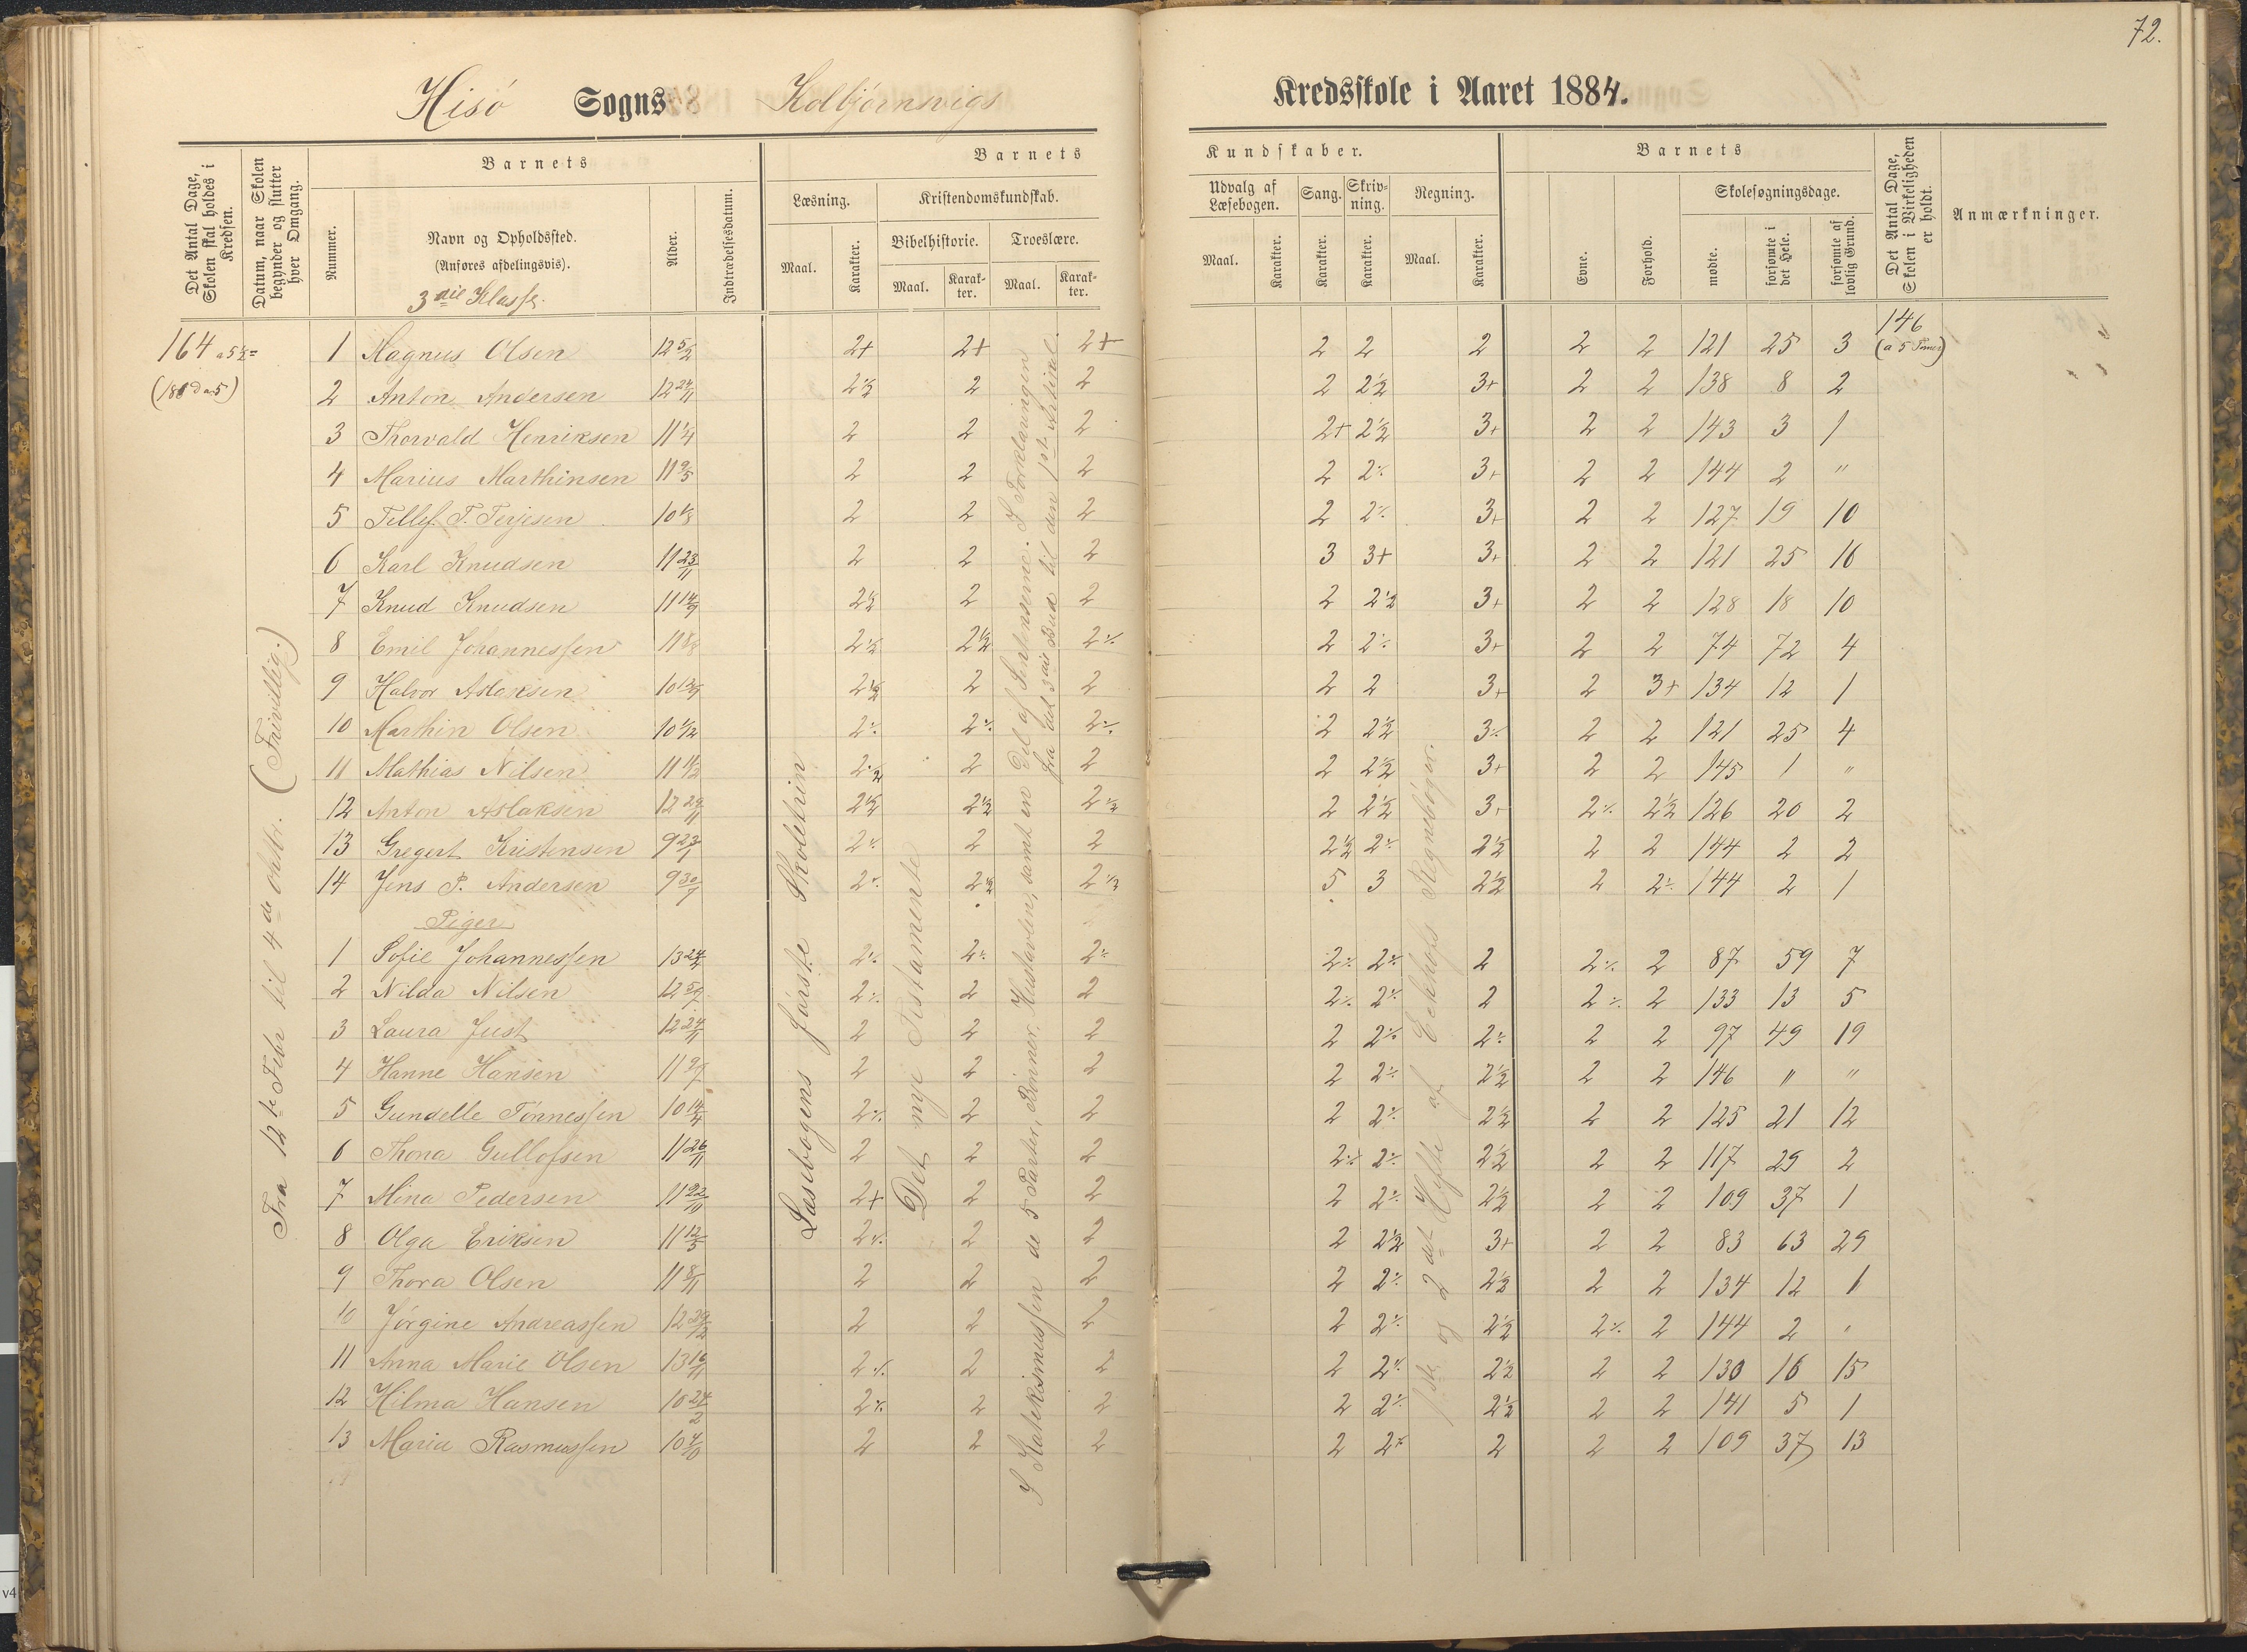 72.
Hisö Sogns Kolbjørnsvigs Kredsskole i Aaret 1884.
Det Antal Dage, Skolen skal holdes i Kredsen.
Datum, naar Skolen begynder og slutter hver Omgang.
Barnets
Nummer.
Navn og Opholdssted.
(Anføres afdelingsvis).
3die Klasse.
Alder.
Indtrædelsesdatum.
Barnets Kundskaber.
Læsning.
Maal. Karakter.
Kristendomskundskab.
Bibelhistorie. Troeslære.
Maal. Karakter. Maal. Karakter.
Udvalg af Læsebogen.
Maal. Karakter.
Sang. Karakter.
Skrivning. Karakter.
Regning.
Maal. Karakter.
Barnets
Evne. Forhold.
Skolesøgningsdage.
mødte. forsømte i det Hele. forsømte af lovlig Grund.
Det Antal Dage, Skolen i Virkeligheden er holdt.
Anmærkninger.
164 a 5½=
146
(a 5 Timer)
Fra 12te Febr til 4de Oktbr. (Frivillig.)
Læsebogens første Skoletrin
Det nye Testamente
I Katekismussen de 5 Parter, Bönner, Hustavlen, samt en Del af Sentenserne. I Forklaringen fra det 3die Bud til den 1ste Artikel.
1ste og 2det Hefte af Eckhofs Regnebøger.
1 Magnus Olsen 12 5/2 2+ 2+ 2+ 2 2 2 2 2 121 25 3
2 Anton Andersen 12 24/11 2½ 2 2 2 2½ 3+ 2 2 138 8 2
3 Thorvald Henriksen 11 1/4 2 2 2 2+ 2½ 3+ 2 2 143 3 1
4 Marius Marthinsen 11 9/5 2 2 2 2 2÷ 3+ 2 2 144 2 "
5 Tellef T. Terjesen 10 1/8 2 2 2 2 2÷ 3+ 2 2 127 19 10
6 Karl Knudsen 11 23/11 2 2 2 3 3+ 3+ 2 2 121 25 16
7 Knud Knudsen 11 14/9 2½ 2 2 2 2½ 3+ 2 2 128 18 10
8 Emil Johannessen 11 8/8 2½ 2½ 2÷ 2 2÷ 3+ 2 2 74 72 4
9 Halvor Aslaksen 10 12/9 2½ 2 2 2 2 3+ 2 3+ 134 12 1
10 Marthin Olsen 10 1/12 2÷ 2÷ 2÷ 2 2½ 3÷ 2 2 121 25 4
11 Mathias Nilsen 11 11/2 2½ 2 2 2 2½ 3+ 2 2 145 1 "
12 Anton Aslaksen 12 29/11 2½ 2½ 2½ 2 2½ 3+ 2÷ 2½ 126 20 2
13 Gregert Kristensen 9 23/1 2÷ 2 2 2½ 2÷ 2½ 2 2 144 2 2
14 Jens P. Andersen 9 30/7 2÷ 2½ 2½ 5 3 2½ 2 2÷ 144 2 1
Piger
1 Sofie Johannessen 13 24/2 2÷ 2÷ 2÷ 2÷ 2÷ 2 2÷ 2 87 59 7
2 Nilda Nilsen 12 5/9 2÷ 2 2 2÷ 2÷ 2 2÷ 2 133 13 5
3 Laura Just 12 24/11 2 2 2 2 2÷ 2÷ 2 2 97 49 19
4 Hanne Hansen 11 9/7 2 2 2 2 2÷ 2½ 2 2 146 " "
5 Gundelle Tønnessen 10 14/4 2÷ 2 2 2 2÷ 2½ 2 2 125 21 12
6 Thona Gullofsen 11 26/11 2 2 2 2÷ 2÷ 2½ 2 2 117 29 2
7 Mina Pedersen 11 22/10 2+ 2 2 2 2÷ 2½ 2 2 109 37 1
8 Olga Eriksen 11 12/5 2÷ 2 2 2 2½ 3+ 2 2 83 63 29
9 Thora Olsen 11 8/11 2 2 2 2 2÷ 2½ 2 2 134 12 1
10 Jörgine Andreassen 12 29/12 2 2 2 2 2÷ 2½ 2÷ 2 144 2 "
11 Anna Marie Olsen 13 16/11 2÷ 2 2 2 2÷ 2½ 2 2 130 16 15
12 Hilma Hansen 10 24/2 2÷ 2 2 2 2÷ 2½ 2 2 141 5 1
13 Maria Rasmussen 10 4/10 2 2 2 2 2÷ 2 2 2 109 37 13
v4